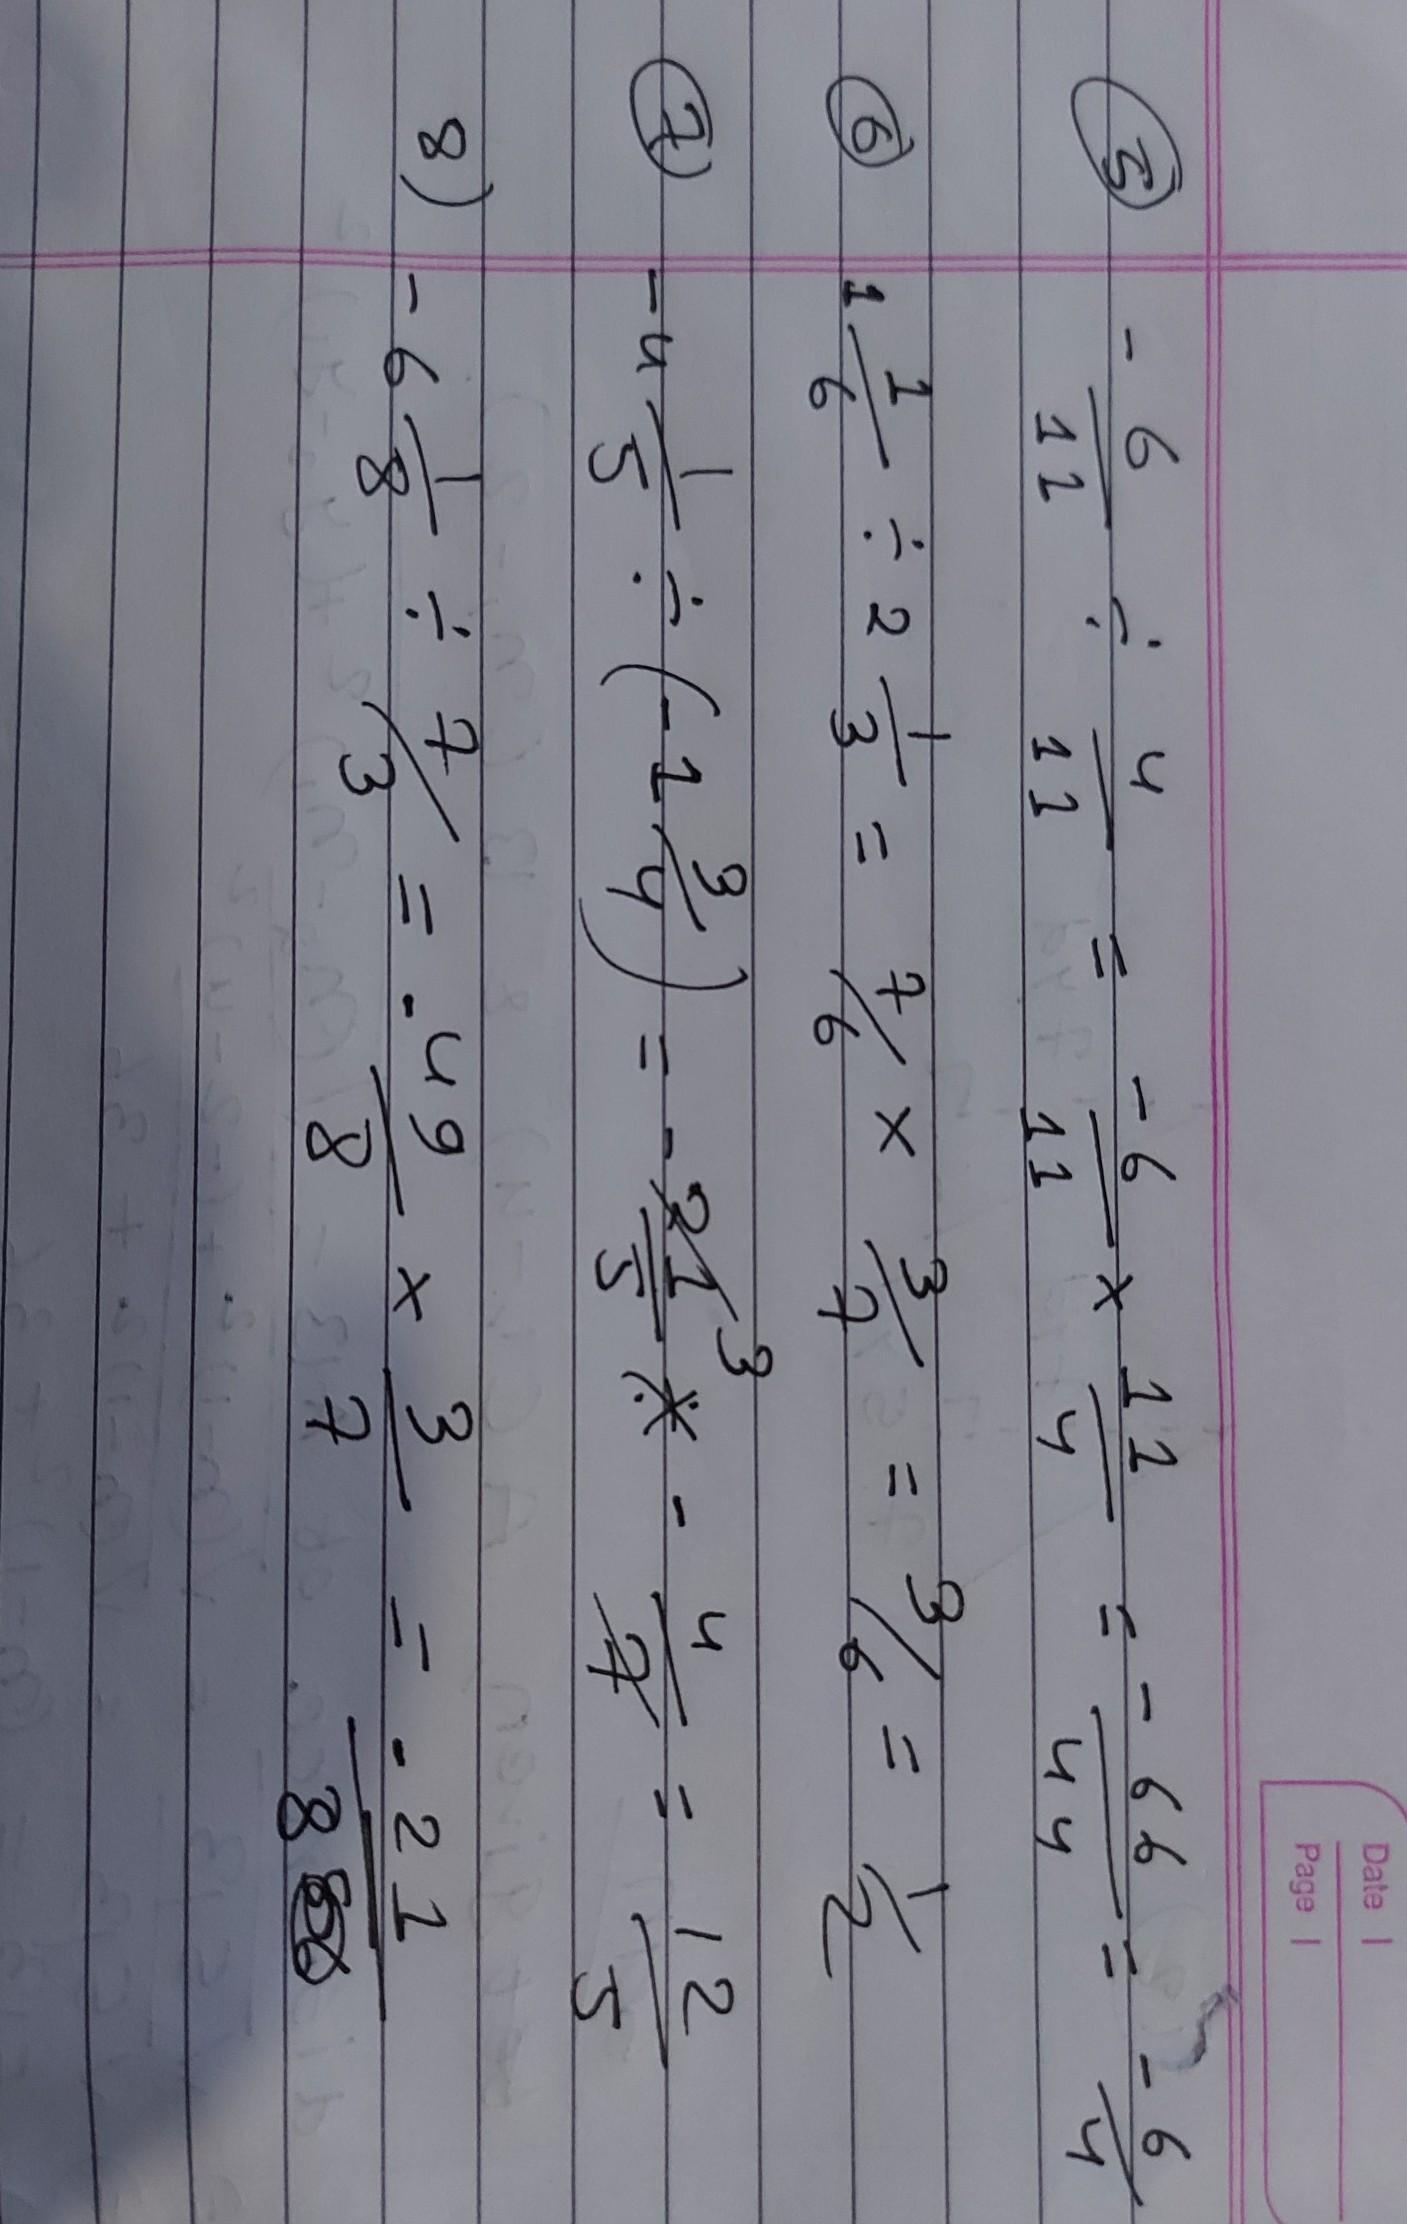 Date |
Page |
5 - 6/11 ÷ 4/11 = - 6/11 × 11/4 = - 66/44 = - 6/4
6 1 1/6 ÷ 2 1/3 = 7/6 × 3/7 = 3/6 = 1/2
7 - 4 1/5 ÷ (-1 3/4) = - 21/5 3 × - 4/7 = 12/5
8) - 6 1/8 ÷ 7/3 = - 49/8 × 3/7 = - 21/8